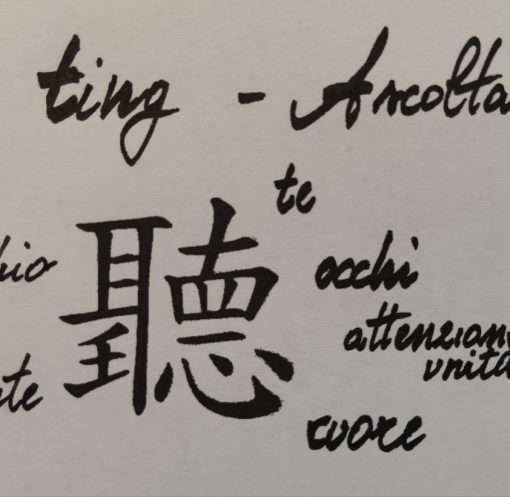 ting - Ascolta
te
hio 聽 occhi
attenzion
unità
te
cuore